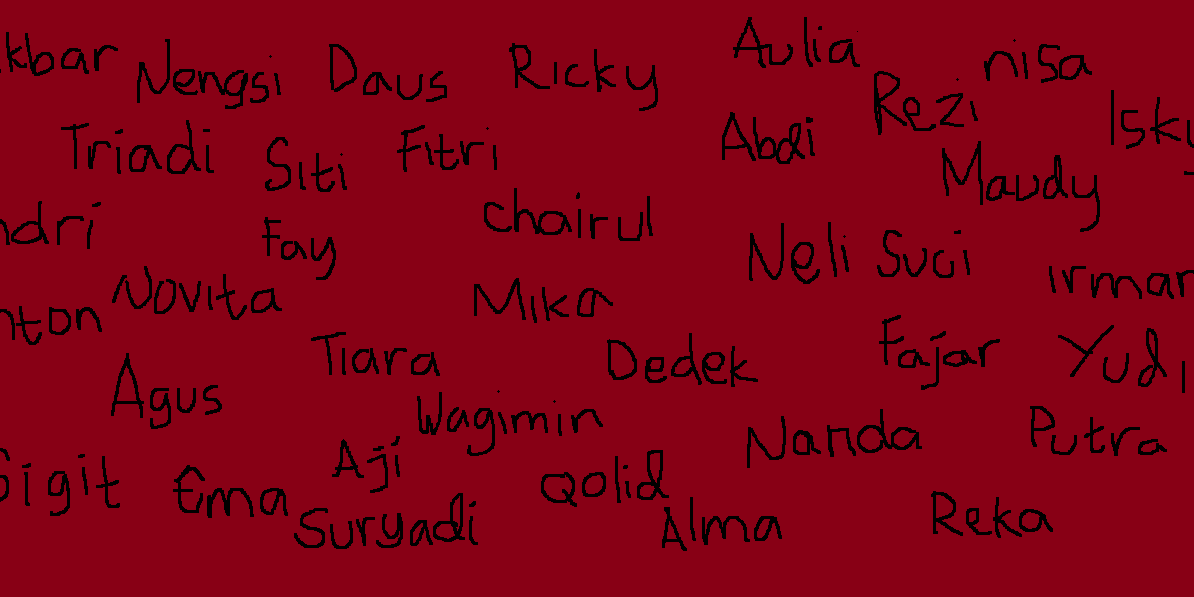 kbar Nengsi Daus Ricky Aulia nisa
Triadi Siti Fitri Abdi Rezi Isk
ndri Fay Chairul Maudy
nton Novita Mika Neli Suci irmar
Agus Tiara Dedek Fajar Yudi
Wagimin Nanda Putra
sigit Ema Aji Qolid
Suryadi Alma Reka